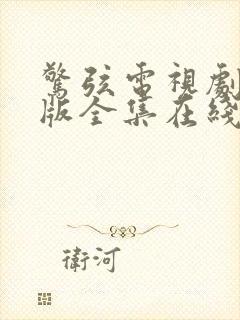 驚弦電視劇
版全集在綫
衛河